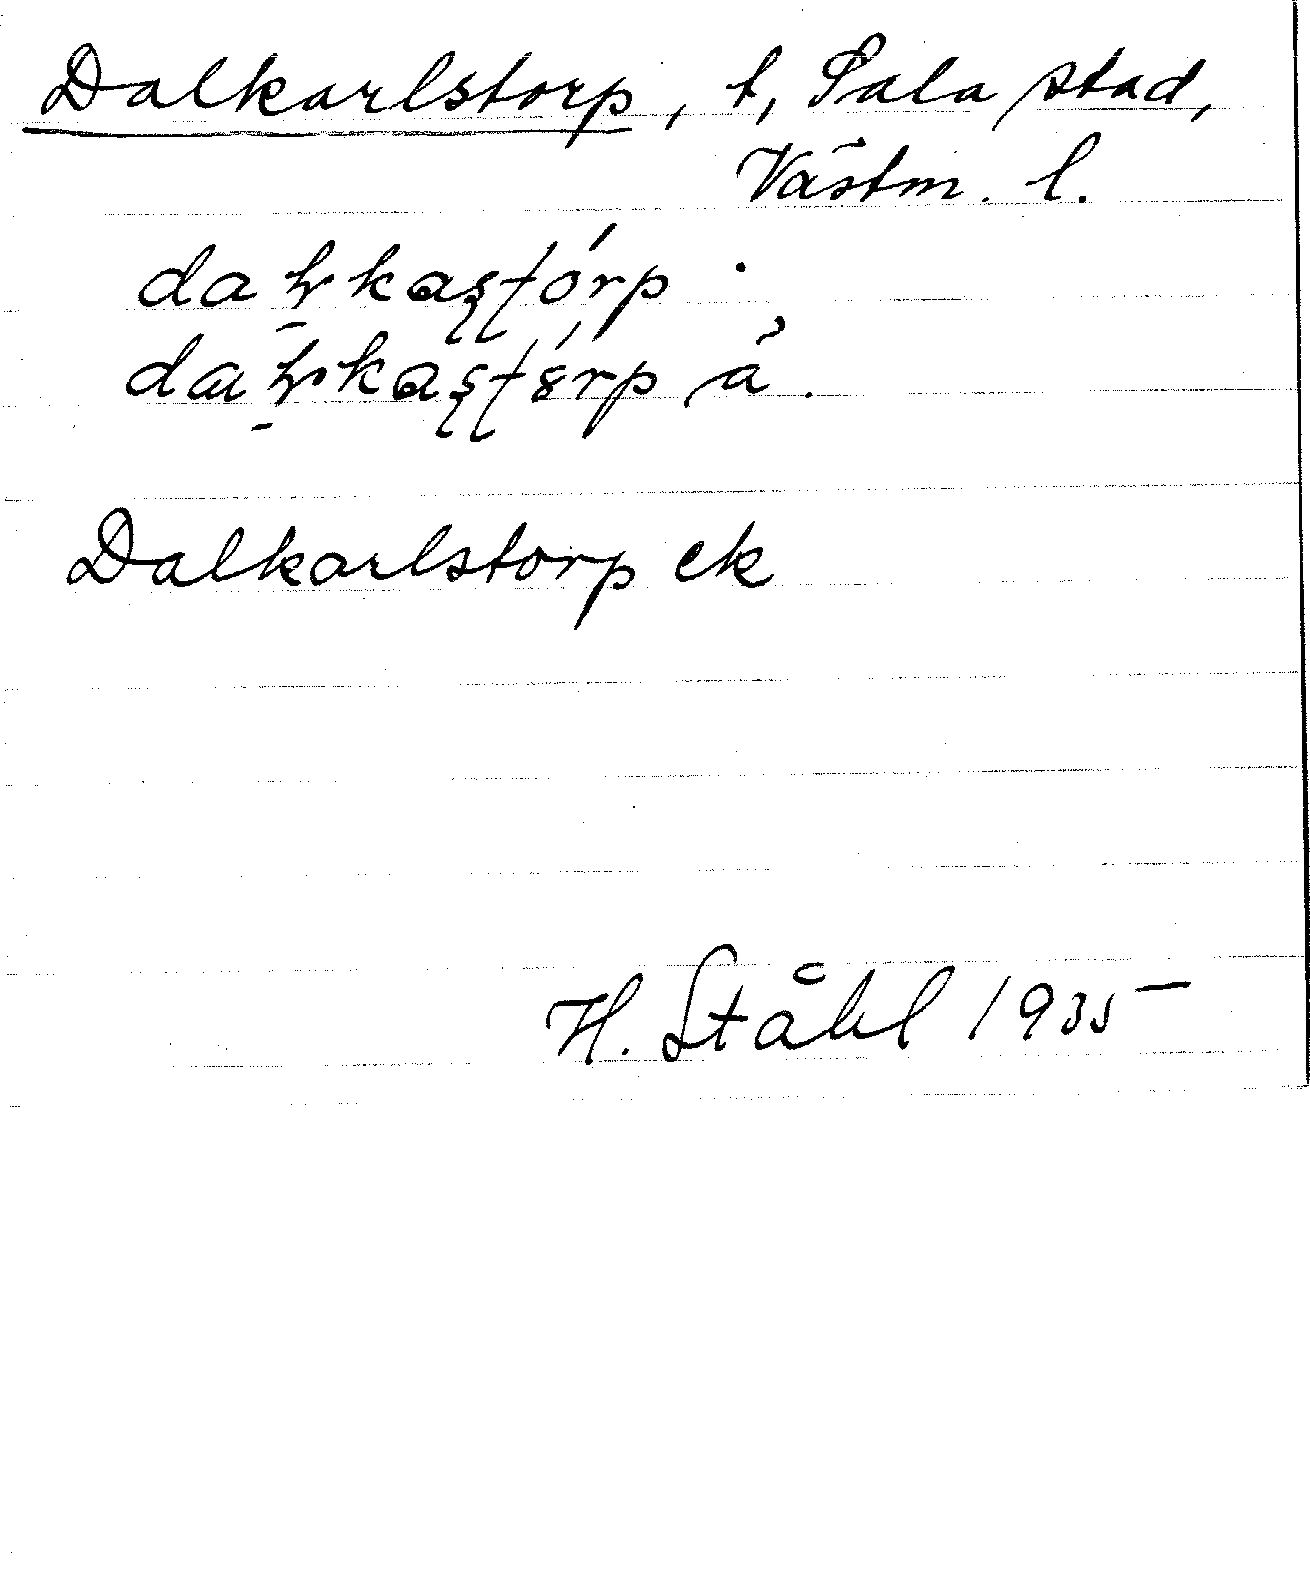 Dalkarlstorp, t, Sala stad,
Västm. l.
Dalkarlstorp ek
H. Ståhl 1935